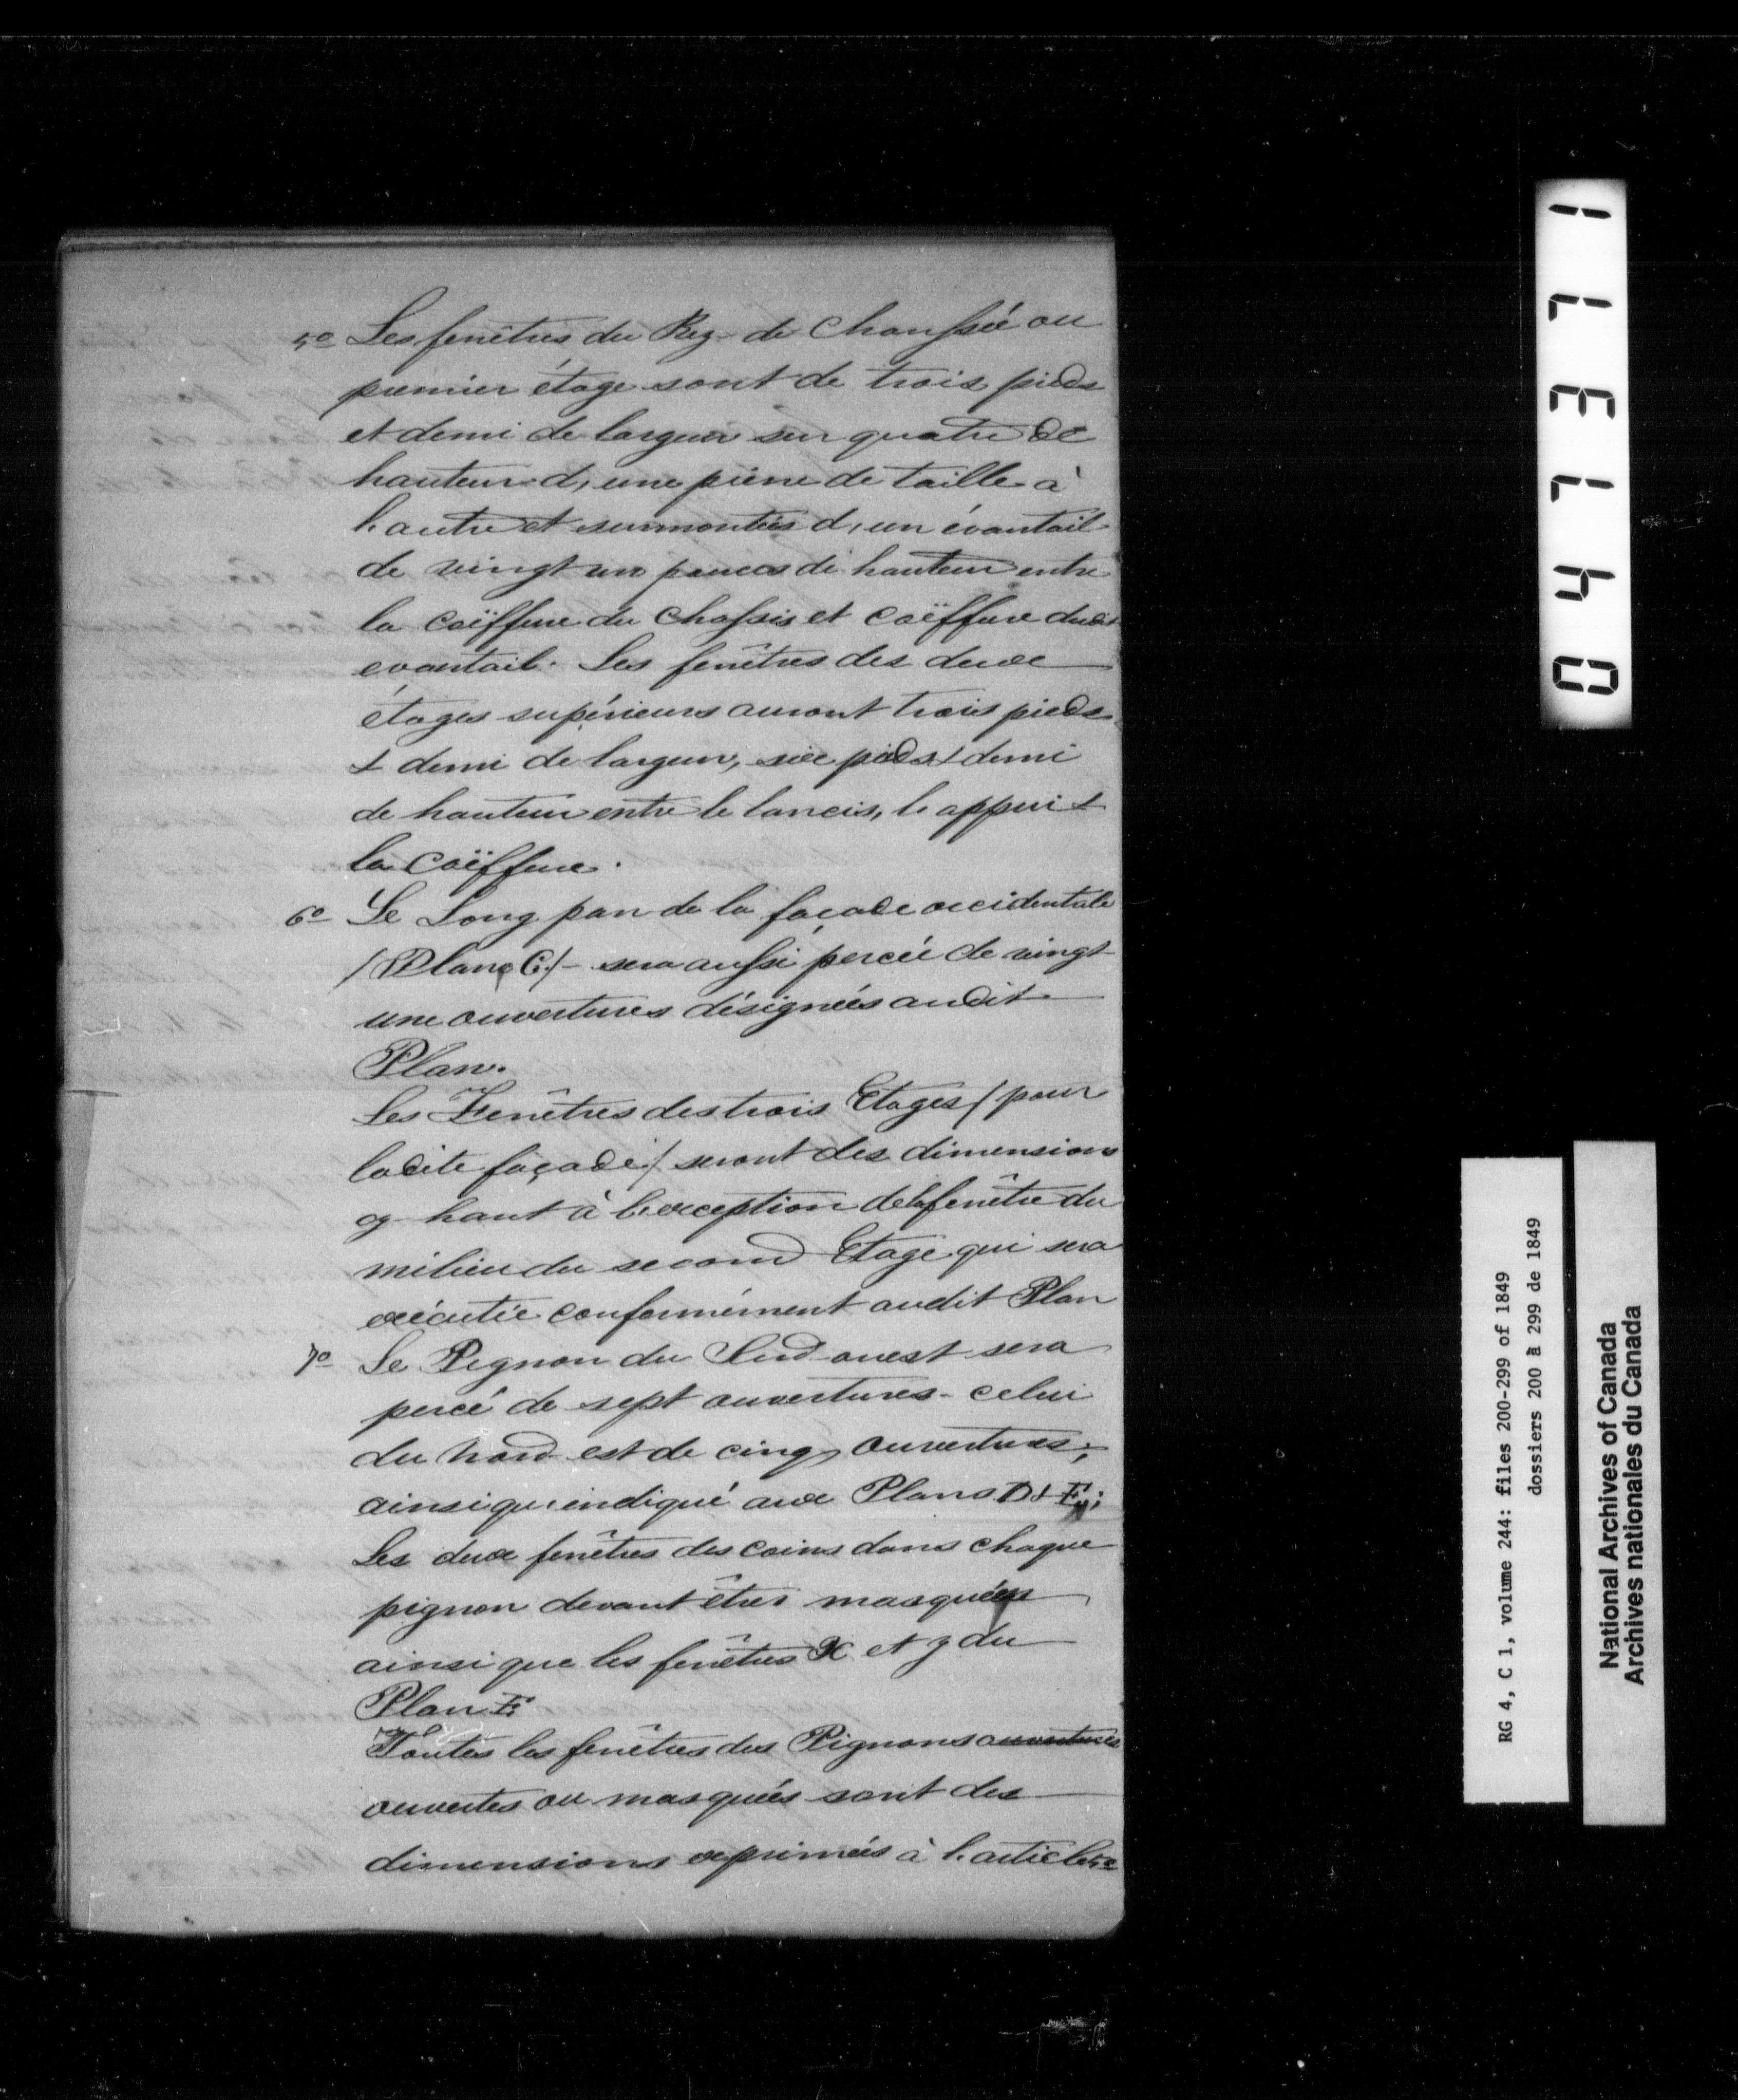 5o Les fenêtres du Rez-de Chaussée ou
premier étage sont de trois pieds
et demi de largeur sur quatre de
hauteur d'une pierre de taille à
l'autre et surmontées d'un évantail
de vingt un pouces de hauteur entre
la coïffure du chassis et coïffure dudit
evantail. Les fenêtres des deux
étages supérieurs auront trois pieds
& demi de largeur, six pieds & demi
de hauteur entre le lancis, l'appui &
la Coïffure.
6o Le Long pan de la façade occidentale
/Plan C/- sera aussi percée de vingt
une ouvertures désignées audit
Plan.
Les Fenêtres des trois Etages / pour
ladite façade / seront des dimensions
cy-haut à l'exception de la fenêtre du
milieu du second Etage qui sera
exécutée conformément audit Plan
7o Le Pignon du Sud-ouest sera
percé de sept ouvertures - celui
du nord est de cinq ouvertures;
ainsi qu'indiqué aux Plans D & E;
Les deux fenêtres des coins dans chaque
pignon devant êtres masquées
ainsi que les fenêtres X et y du
Plan E
Toutes les fenêtres des Pignons ouvertures
ouvertes ou masquées sont des
dimensions exprimées à l'article 5e
047371
RG 4, C 1, volume 244: files 200-299 of 1849
dossiers 200 à 299 de 1849
National Archives of Canada
Archives nationales du Canada